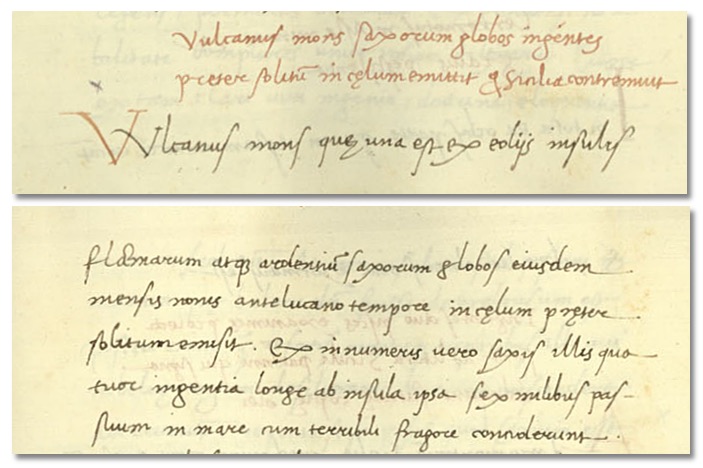 Vulcanus mons saxorum globos ingentes
preter solitū in cęlum emittit ꝙ Sicilia contremuit
Vulcanus mons quę una est ex eolijs insulis
flāmarum atqꝫ ardentiū saxorum globos eiusdem
mensis nonis antelucano tempore in cęlum pręter
solitum emisit. Ex innumeris vero saxis illis qua
tuor ingentia longe ab insula ipsa sex milibus pas-
suum in mare cum terribili fragore conciderunt.